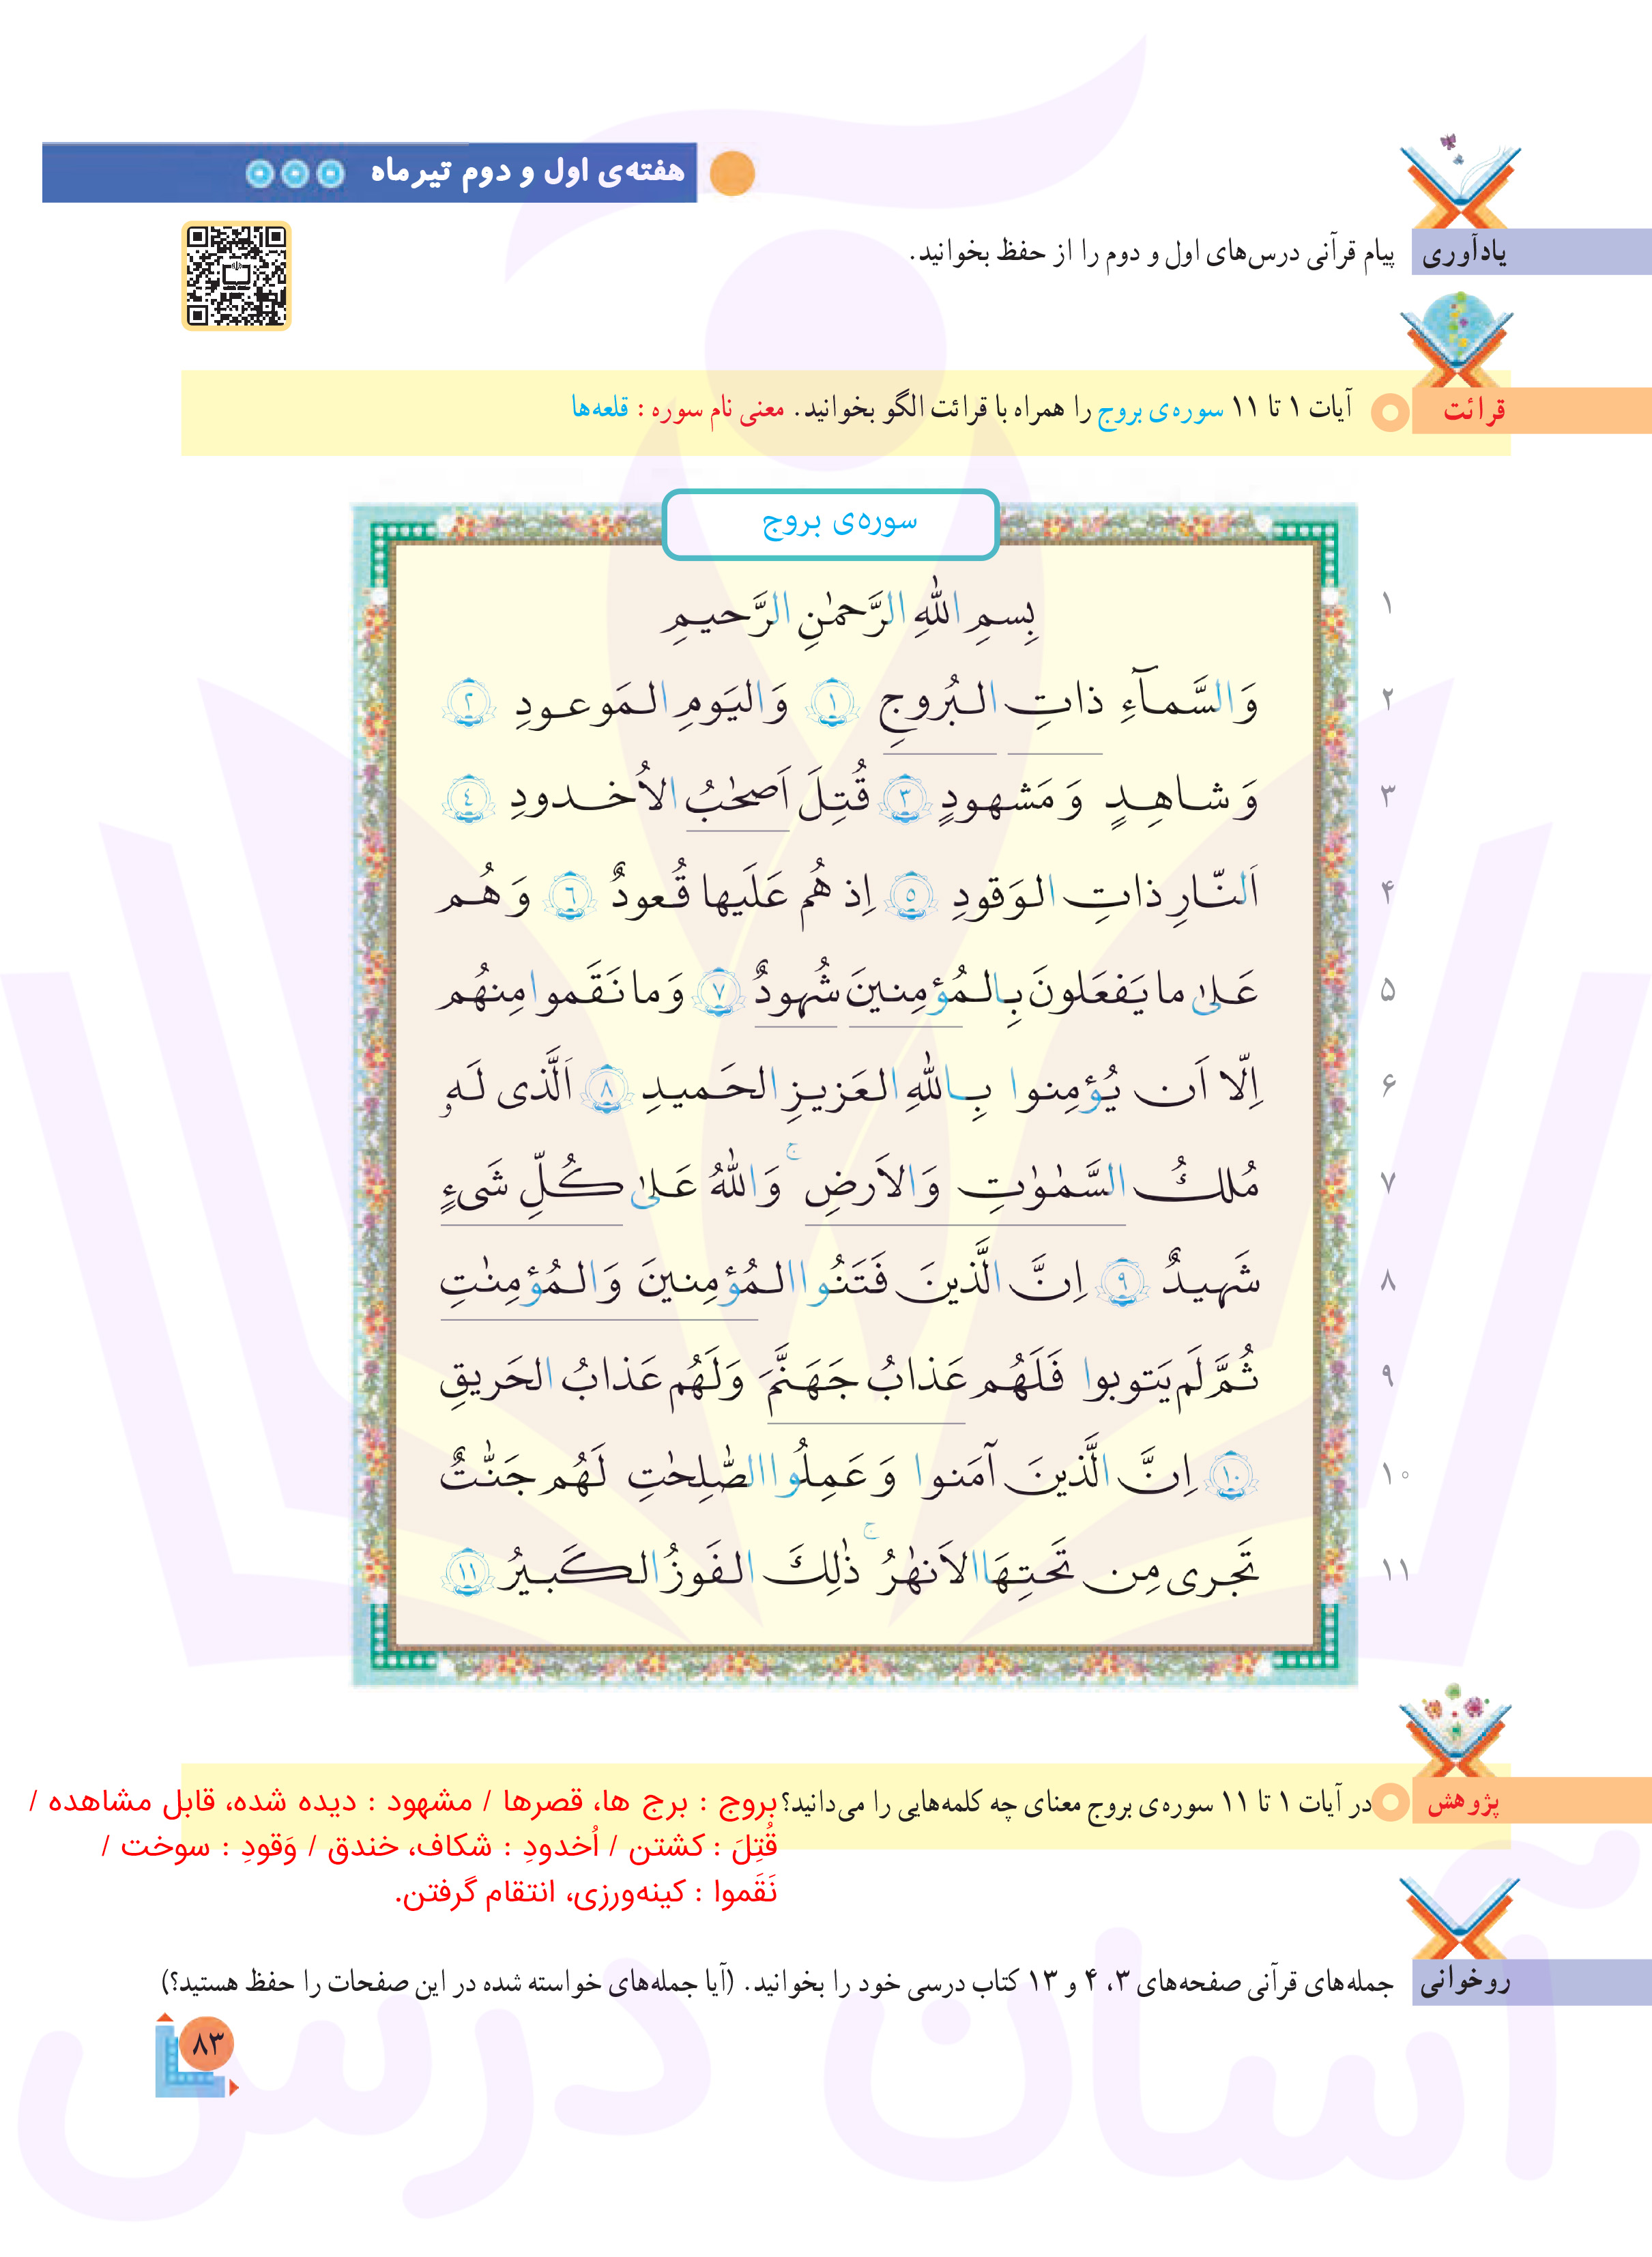 هفته‌ی اول و دوم تیرماه
یادآوری
پیام قرآنی درس‌های اول و دوم را از حفظ بخوانید.
قرائت
آیات ۱ تا ۱۱ سوره‌ی بروج را همراه با قرائت الگو بخوانید. معنی نام سوره : قلعه‌ها
سوره‌ی بروج
۱ بِسمِ اللّٰهِ الرَّحمٰنِ الرَّحیمِ
۲ وَالسَّمآءِ ذاتِ البُروجِ ﴿١﴾ وَالیَومِ المَوعودِ ﴿٢﴾
۳ وَ شاهِدٍ وَ مَشهودٍ ﴿٣﴾ قُتِلَ اَصحٰبُ الاُخدودِ ﴿٤﴾
۴ اَلنّارِ ذاتِ الوَقودِ ﴿٥﴾ اِذ هُم عَلَیها قُعودٌ ﴿٦﴾ وَ هُم
۵ عَلیٰ ما یَفعَلونَ بِالمُؤمِنینَ شُهودٌ ﴿٧﴾ وَ ما نَقَموا مِنهُم
۶ اِلّا اَن یُؤمِنوا بِاللّٰهِ العَزیزِ الحَمیدِ ﴿٨﴾ اَلَّذی لَهٖ
۷ مُلكُ السَّمٰوٰتِ وَالاَرضِ ۚ وَاللّٰهُ عَلیٰ كُلِّ شَیءٍ
۸ شَهیدٌ ﴿٩﴾ اِنَّ الَّذینَ فَتَنُوا المُؤمِنینَ وَالمُؤمِنٰتِ
۹ ثُمَّ لَم یَتوبوا فَلَهُم عَذابُ جَهَنَّمَ وَلَهُم عَذابُ الحَریقِ
۱۰ ﴿١٠﴾ اِنَّ الَّذینَ آمَنوا وَ عَمِلُوا الصّٰلِحٰتِ لَهُم جَنّٰتٌ
۱۱ تَجری مِن تَحتِهَا الاَنهٰرُ ۚ ذٰلِكَ الفَوزُ الكَبیرُ ﴿١١﴾
پژوهش
در آیات ۱ تا ۱۱ سوره‌ی بروج معنای چه کلمه‌هایی را می‌دانید؟ بروج : برج ها، قصرها / مشهود : دیده شده، قابل مشاهده /
قُتِلَ : کشتن / اُخدودِ : شکاف، خندق / وَقودِ : سوخت /
نَقَموا : کینه‌ورزی، انتقام گرفتن.
روخوانی
جمله‌های قرآنی صفحه‌های ۳، ۴ و ۱۳ کتاب درسی خود را بخوانید. (آیا جمله‌های خواسته شده در این صفحات را حفظ هستید؟)
۸۳
آسان درس